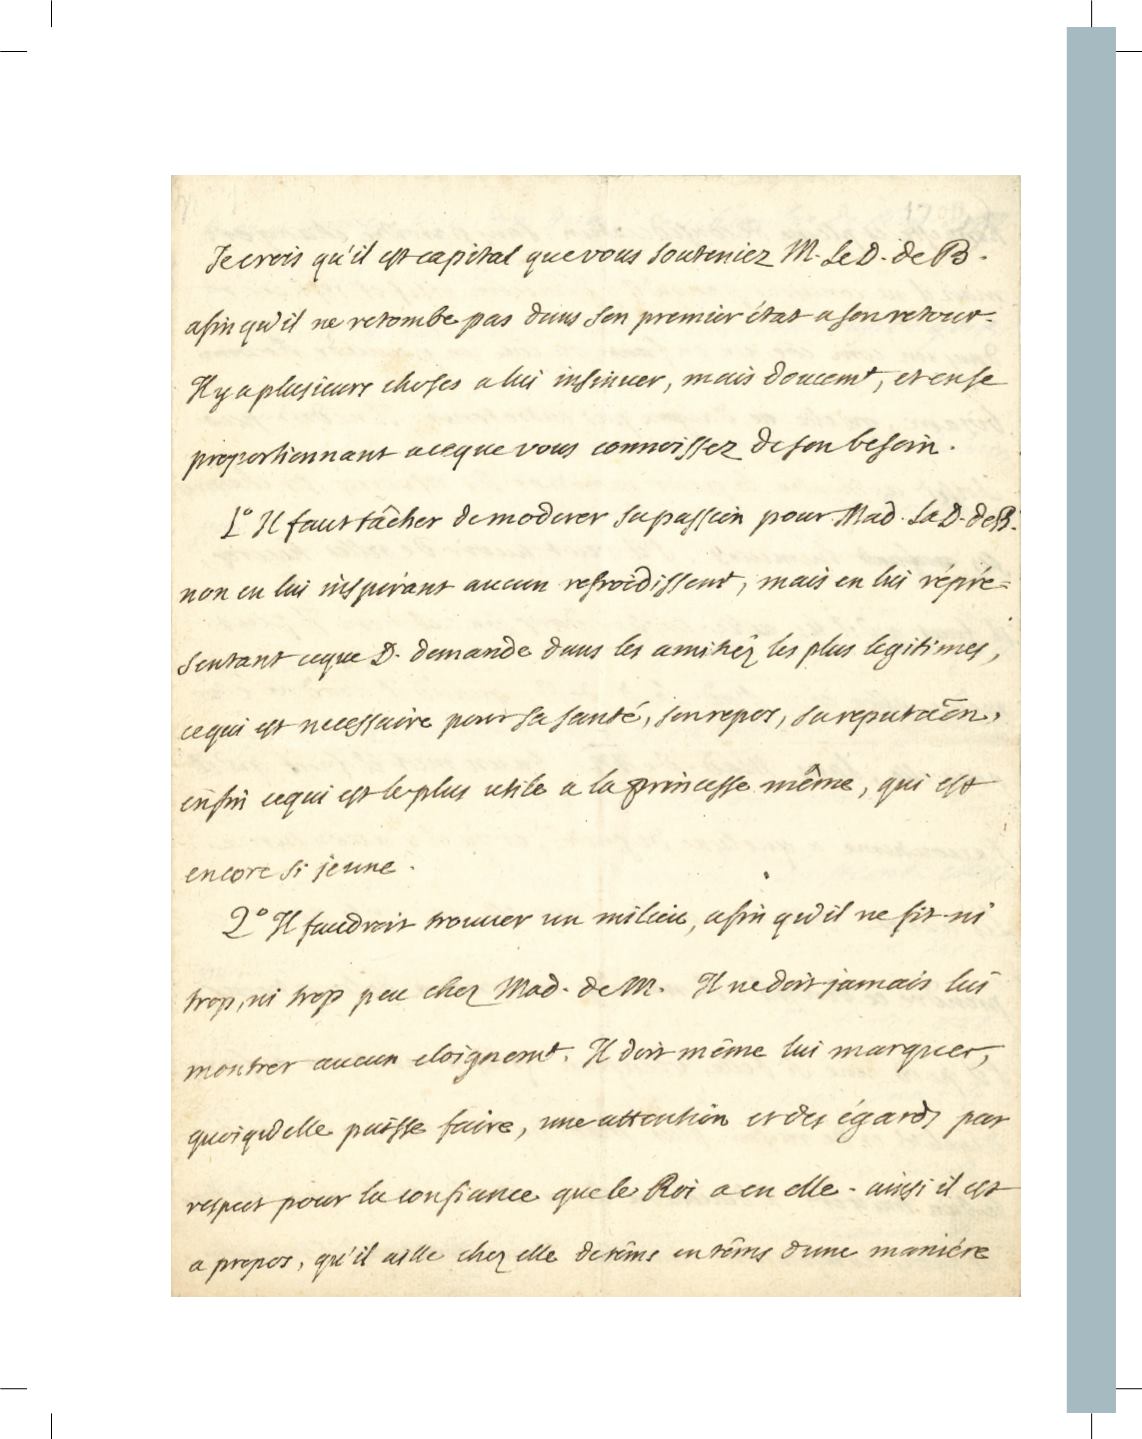 Je crois qu'il est capital que vous souteniez M. Le D. de B.
afin qu'il ne retombe pas dans son premier état a son retour.
Il y a plusieurs choses a lui insinuer, mais doucemt, et en se
proportionnant a ce que vous connoissez de son besoin.
1º Il faut tâcher de moderer sa passion pour Mad. La D. de B.
non en lui inspirant aucun refroidissemt, mais en lui répré=
sentant ce que D. demande dans les amitiéz les plus legitimes,
ce qui est necessaire pour sa santé, son repos, sa reputaõn,
enfin ce qui est le plus utile a la princesse même, qui est
encore si jeune.
2º Il faudroit trouver un milieu, afin qu'il ne fit ni
trop, ni trop peu chez Mad. de M. Il ne doit jamais lui
montrer aucun eloignemt. Il doit même lui marquer,
quoiqu'elle puisse faire, une attention et des égards par
respect pour la confiance que le Roi a en elle. ainsi il est
a propos, qu'il aille chez elle de têms en têms d'une maniére